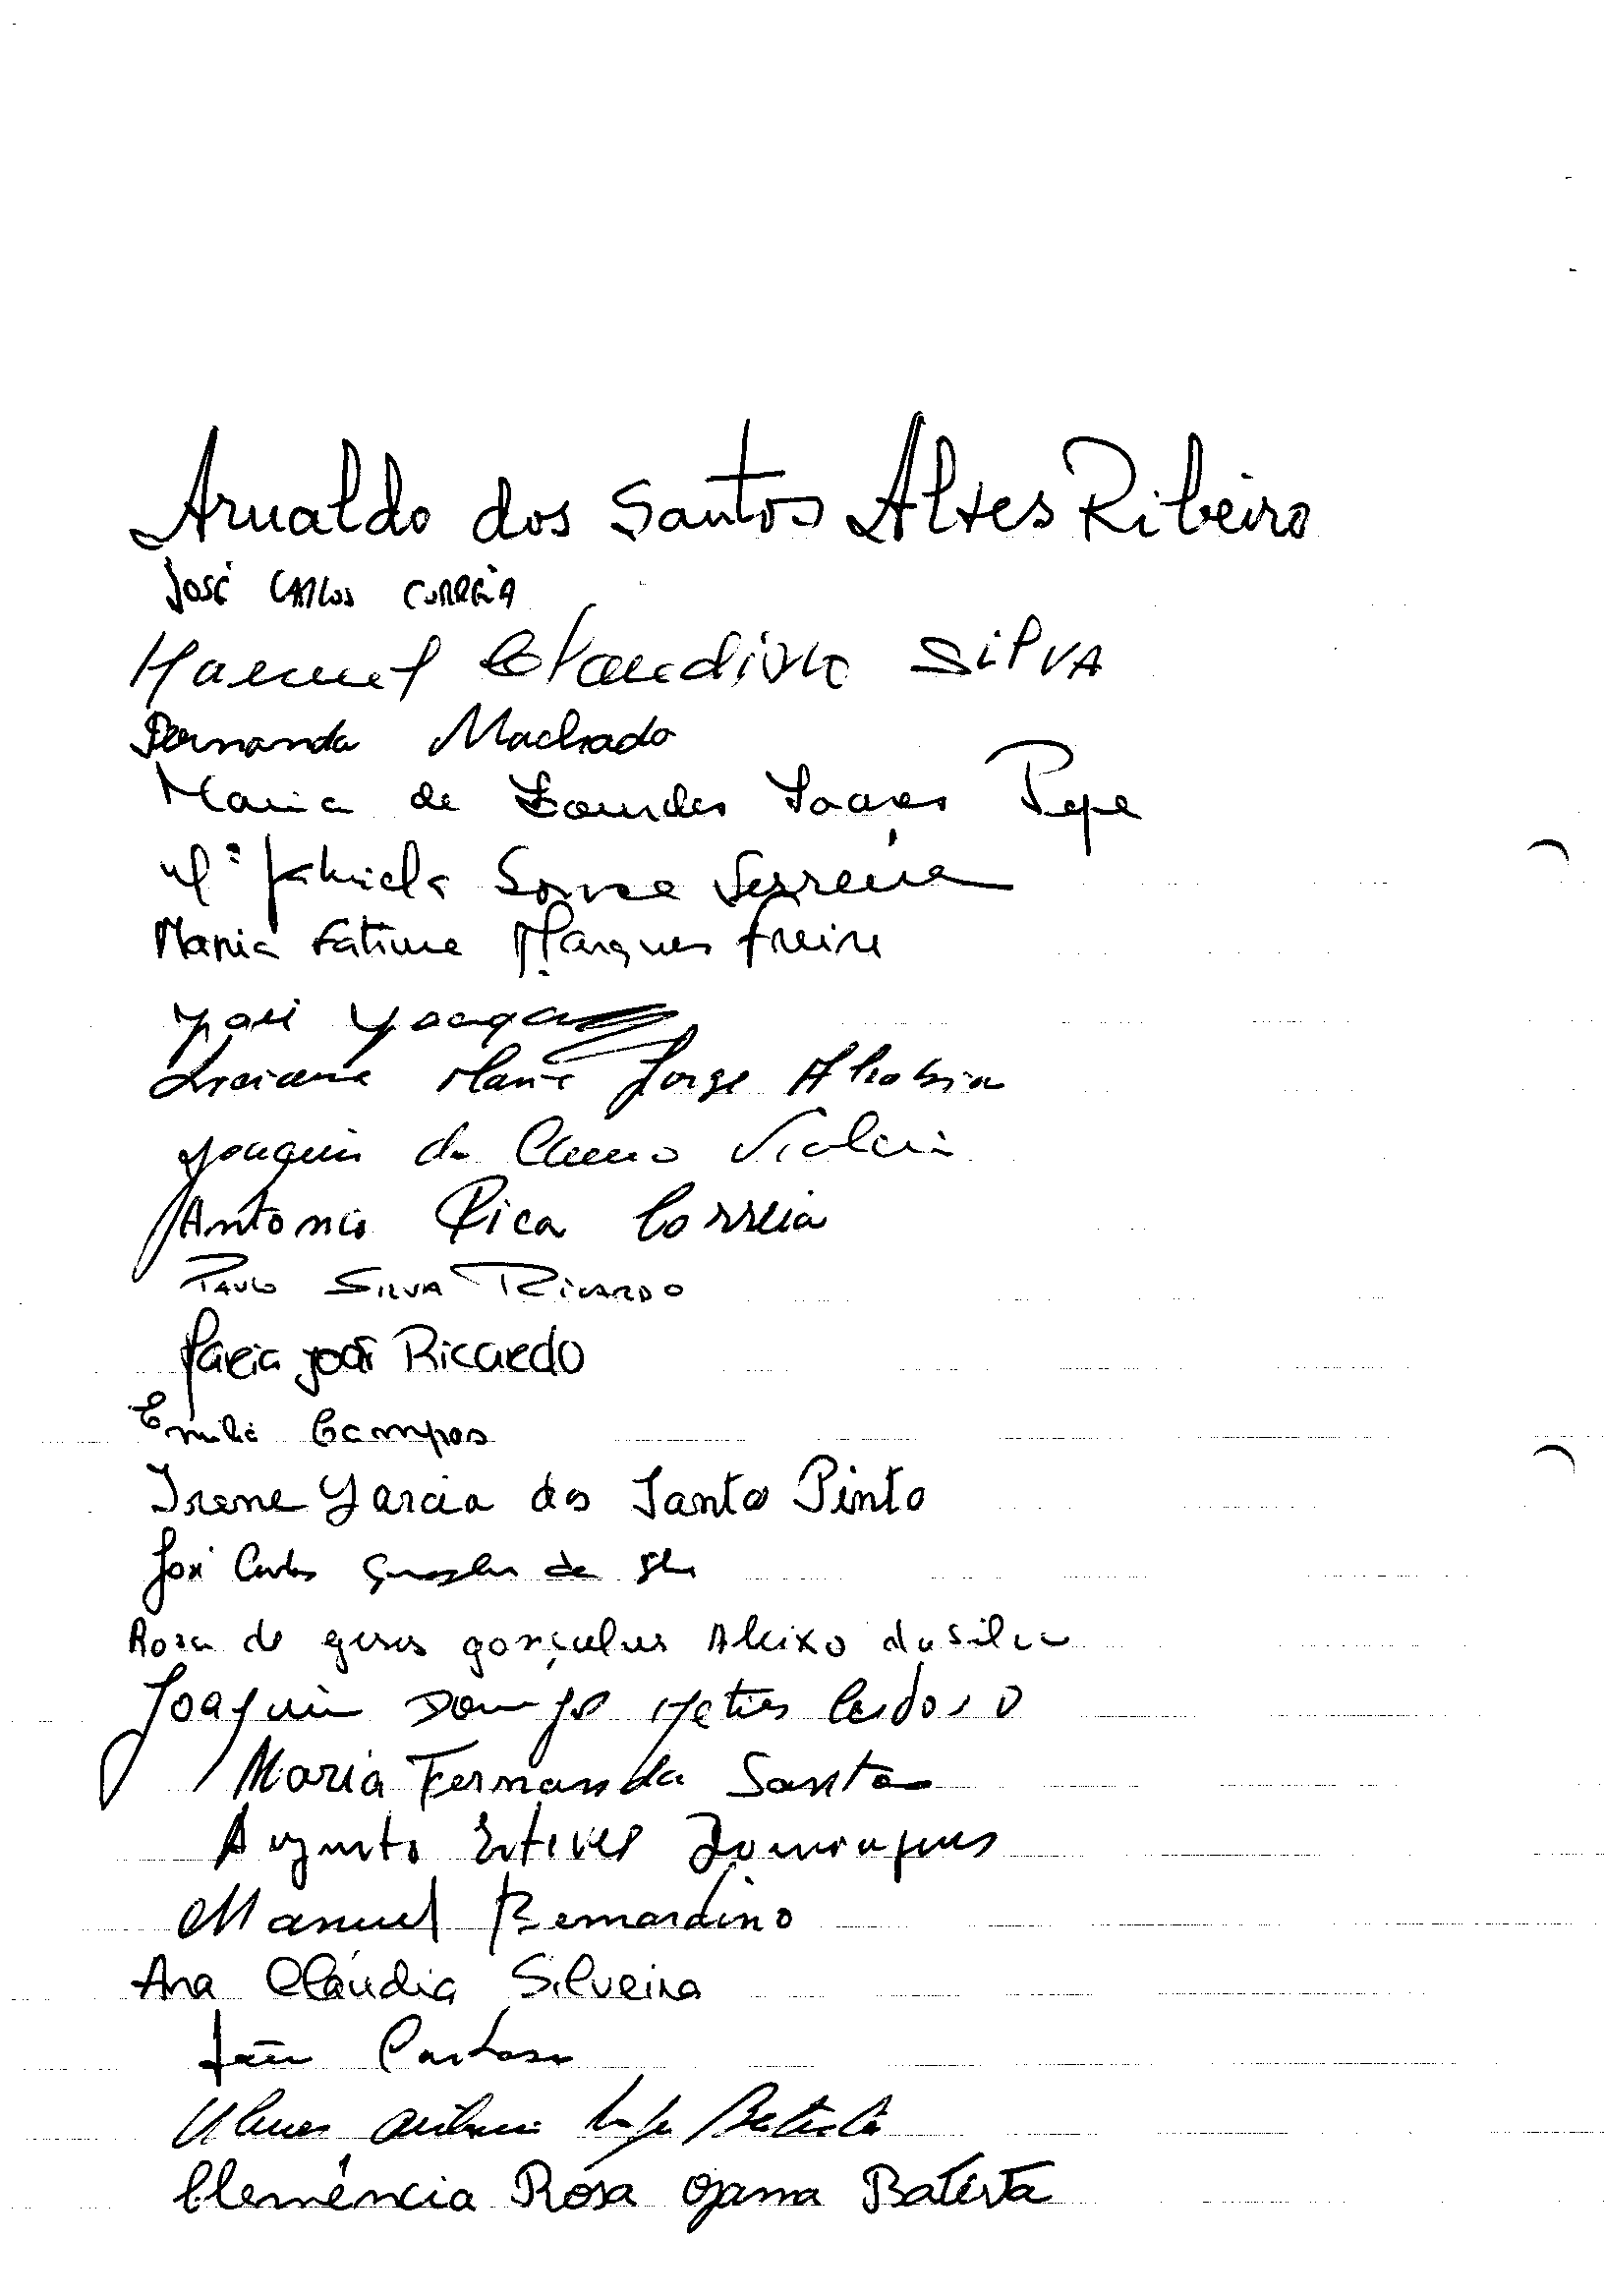 Arnaldo dos Santos Alves Ribeiro
José CARLOS CORREIA
Manuel SILVA
Fernanda Machado
Maria de Lourdes Soares Pepe
Mª Gabriela Sousa Ferreira
Maria Fatima Marques Freire
José
Luciana Maria Jorge
Joaquim do
Antonio Rica Correia
PAULO SILVA RICARDO
Maria João Ricardo
Emilia Campos
Irene Garcia dos Santos Pinto
José Carlos de
Rosa de gonçalves Aleixo da Silva
Joaquim Matias Cardoso
Maria Fernanda Santos
Augusto Esteves Domingues
Manuel Bernardino
Ana Cláudia Silveira
João Cardoso
Ulisses António Batista
Clemência Rosa Gama Batista